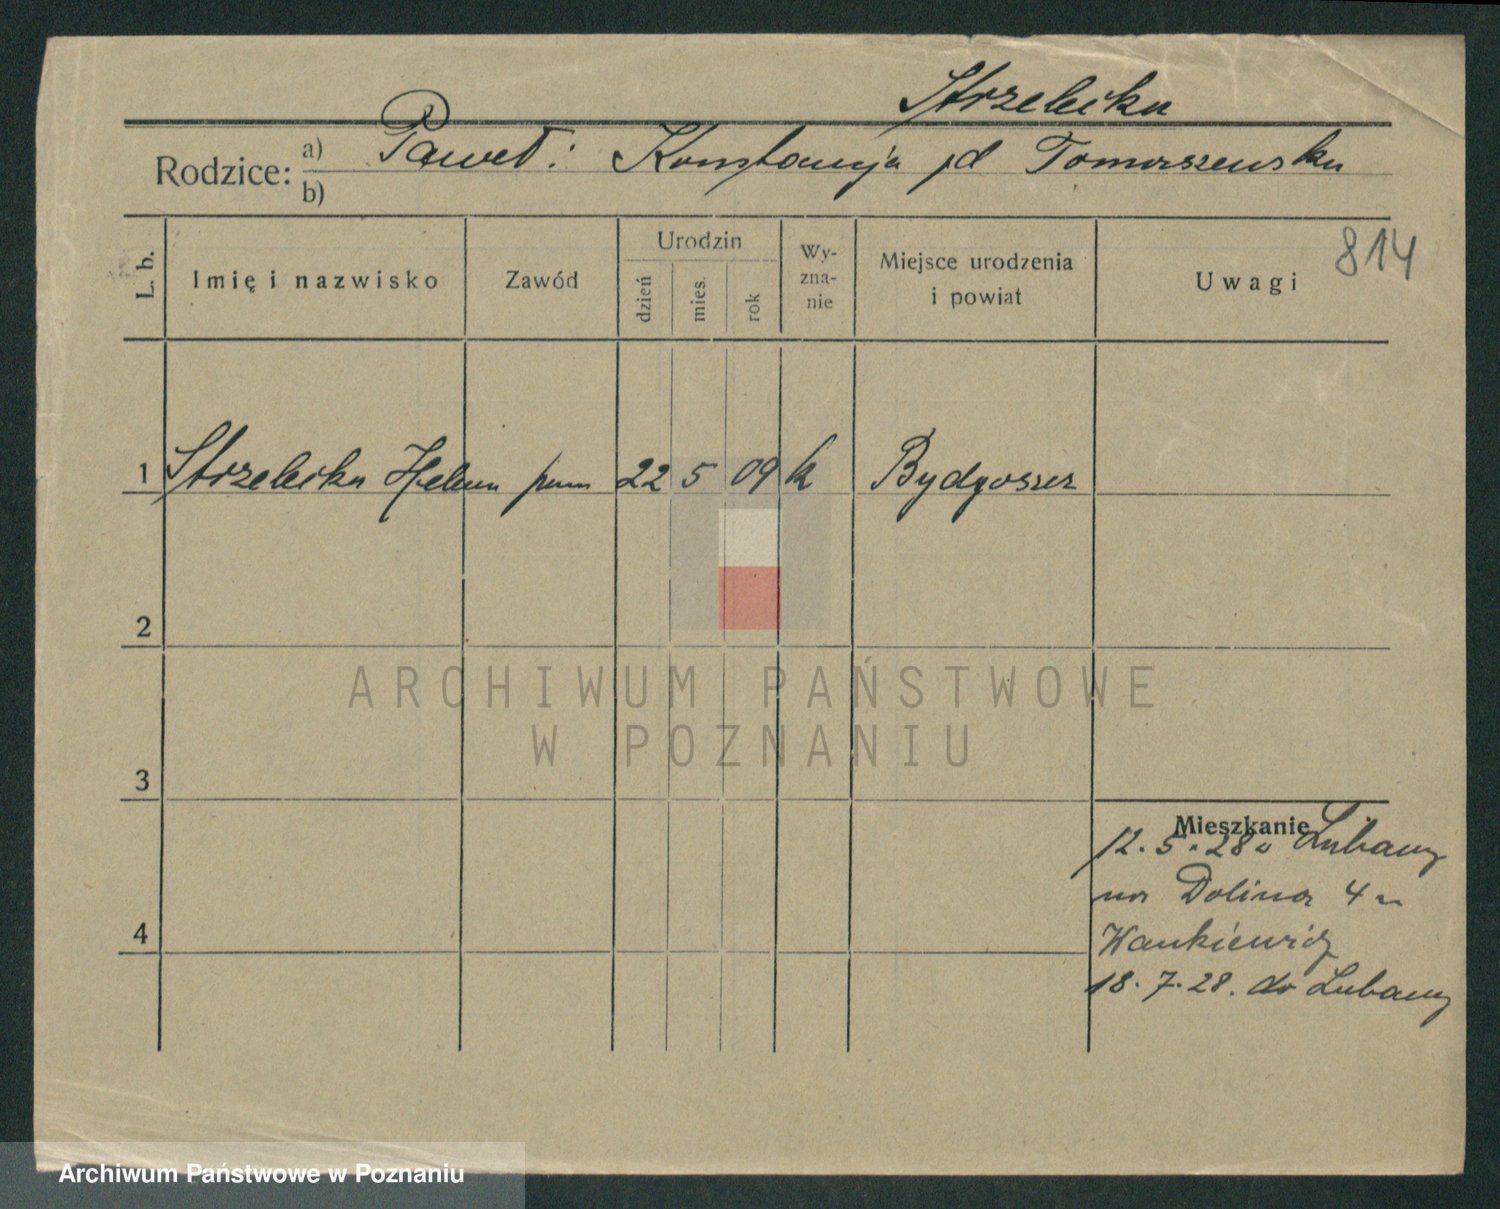 Strzelecka
Rodzice: a) Paweł i Konstancja zd Tomaszewska
b)
814
L. b. Imię i nazwisko Zawód Urodzin dzień mies. rok Wy-zna-nie Miejsce urodzenia i powiat Uwagi
1 Strzelecka Helena 22 5 09 k Bydgoszcz
2
3
4
Mieszkanie
12.5.28 z Lubawy
na Dolina 4
Wankiewicz
18.7.28. do Lubawy
ARCHIWUM PAŃSTWOWE
W POZNANIU
Archiwum Państwowe w Poznaniu